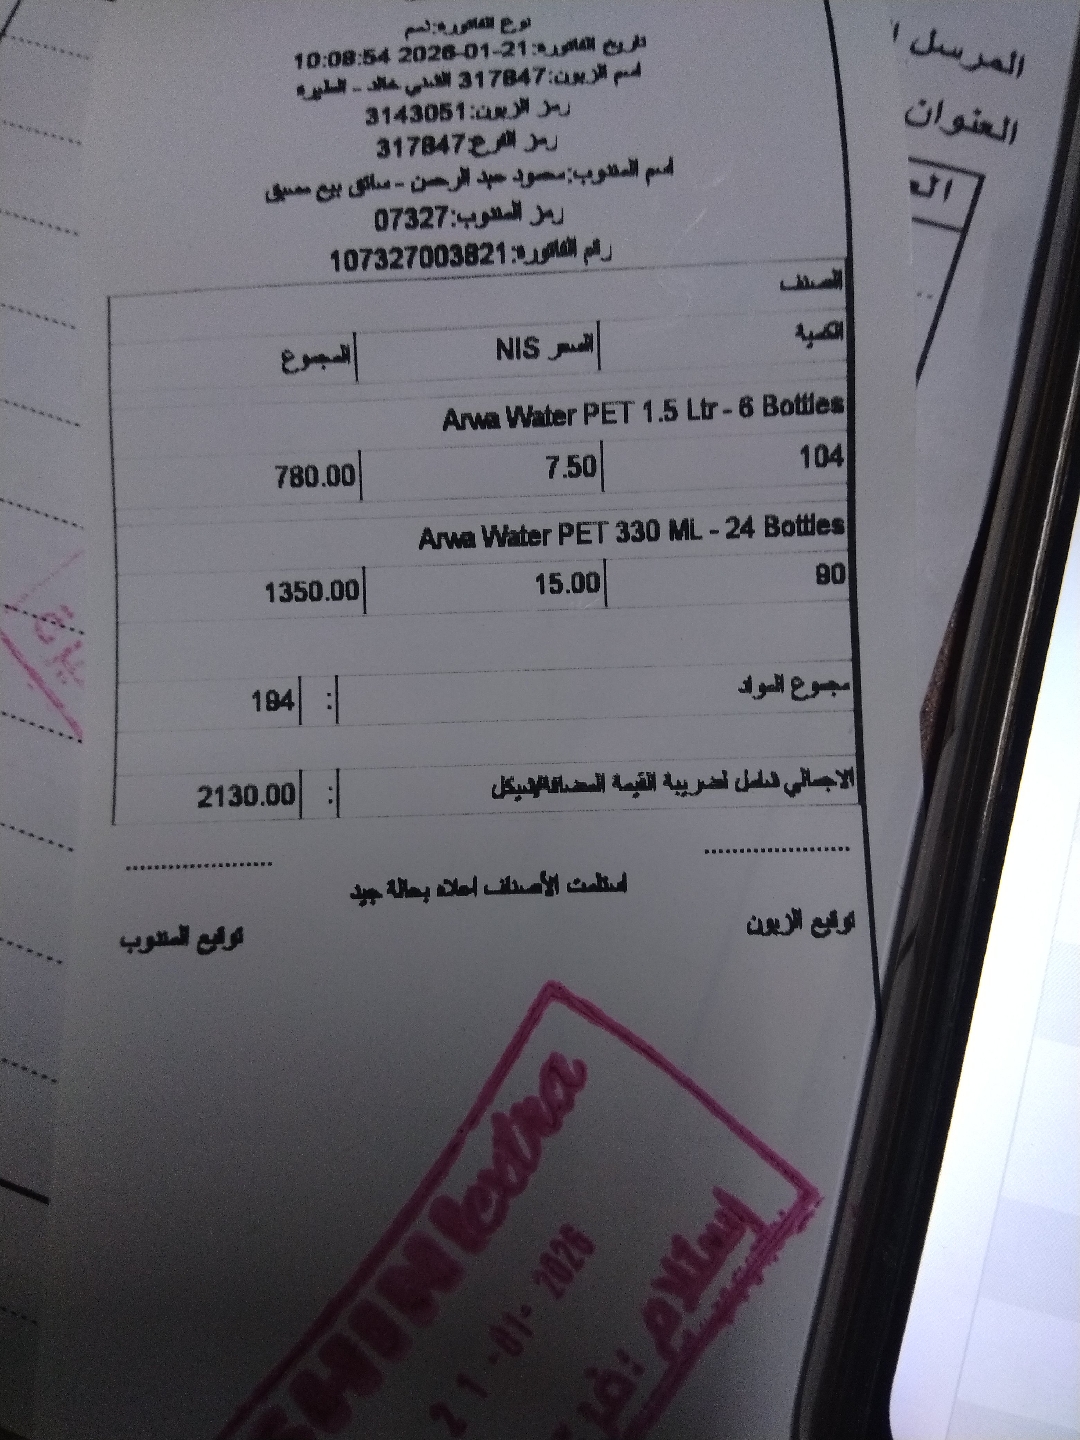 نوع الفاتورة:ذمم
تاريخ الفاتورة:21-01-2026 10:08:54
اسم الزبون:317847 الشني خالد - الطيرة
رمز الزبون:3143051
رمز الفرع:317847
اسم المندوب:محمود عبد الرحمن - سائق بيع مسبق
رمز المندوب:07327
رقم الفاتورة:107327003821
الصنف
الكمية السعر NIS المجموع
Arwa Water PET 1.5 Ltr - 6 Bottles
104 7.50 780.00
Arwa Water PET 330 ML - 24 Bottles
90 15.00 1350.00
مجموع المواد : 194
الاجمالي شامل لضريبة القيمة المضافة/شيكل : 2130.00
استلمت الأصناف اعلاه بحالة جيد
توقيع الزبون توقيع المندوب
extra
21-01-2026
إستلام :
المرسل
العنوان